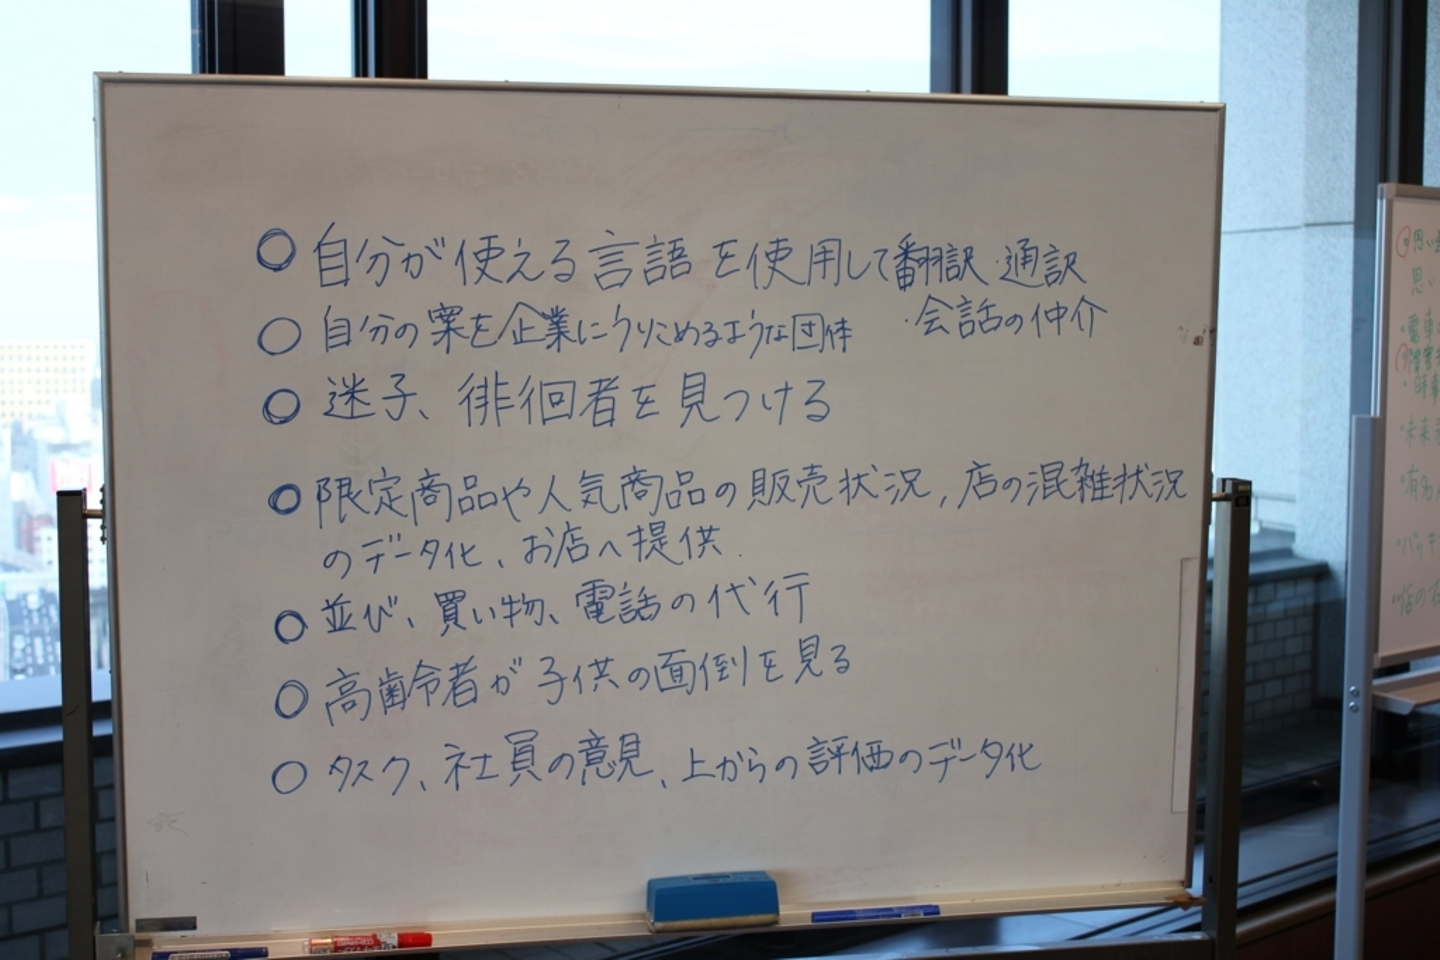 ○ 自分が使える言語を使用して翻訳・通訳
・会話の仲介
○ 自分の案を企業にうりこめるような団体
○ 迷子、徘徊者を見つける
○ 限定商品や人気商品の販売状況, 店の混雑状況
のデータ化、お店へ提供.
○ 並び、買い物、電話の代行
○ 高齢者が子供の面倒を見る
○ タスク、社員の意見、上からの評価のデータ化
思い
思い